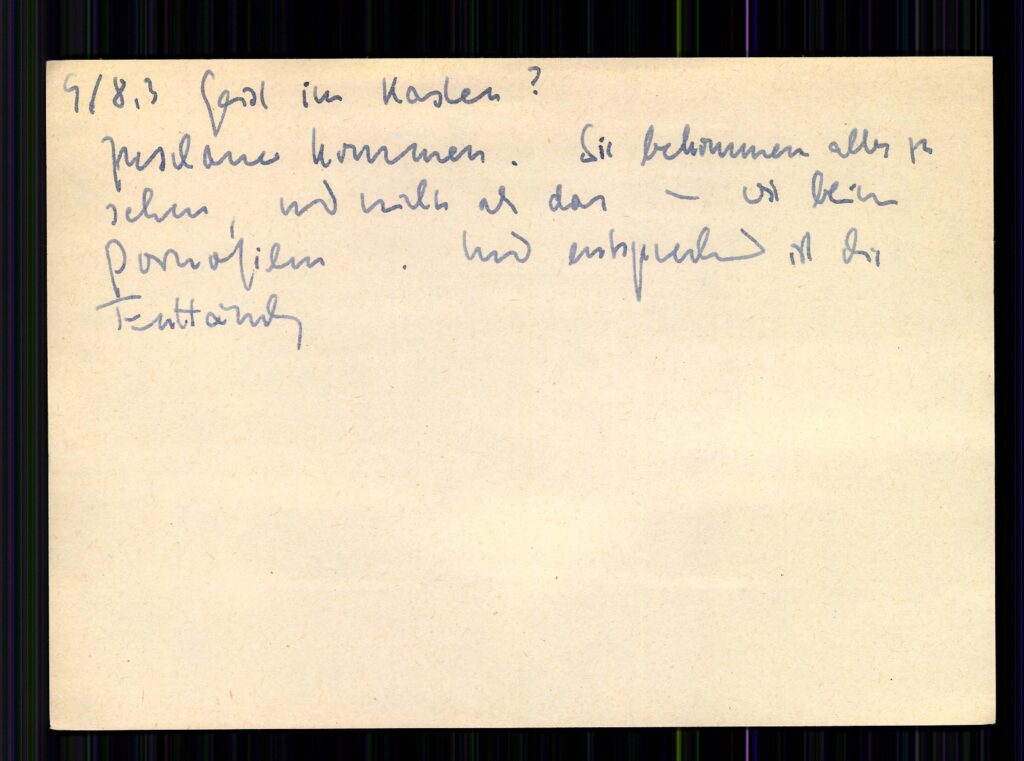 9/8,3 Geist im Kasten?
Zuschauer kommen. Sie bekommen alles zu
sehen, und nichts als das – wie beim
Pornofilm. Und entsprechend ist die
Enttäuschung